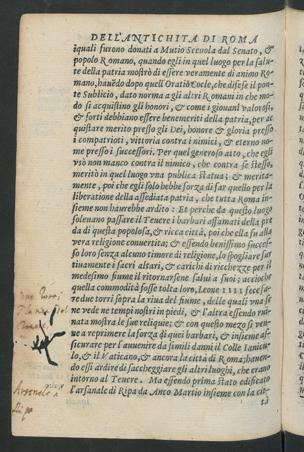 DELL'ANTICHITA DI ROMA
iquali furono donati a Mutio Sceuola dal Senato, &
popolo Romano, quando egli in quel luogo per la salu-
te della patria mostrò di essere veramente di animo Ro-
mano, hauẽdo dopo quell'Oratio Cocle, che difese il pon-
te Sublicio, dato norma a gli altri Romani in che mo-
do si acquistino gli honori, & come i giouani valorosi,
& forti debbiano essere benemeriti della patria, per ac-
quistare merito presso gli Dei, honore & gloria presso
i compatrioti, vittoria contra i nimici, & eterno no-
me presso i successori. Per quel generoso atto, che egli
vsò non manco contra il nimico, che contra se stesso,
meritò in quel luogo vna publica statua; & merita-
mente, poi che egli solo hebbe forza di far quello per la
liberatione della assediata patria, che tutta Roma in-
sieme non haurebbe ardito: Et perche da questo luogo
soleuano passare il Teuere i barbari affamati della pre
da di questa popolosa, & ricca città, poi che ella fu alla
vera religione conuertita; & essendo benissimo succes-
so loro senza alcuno timore di religione, lo spogliare fur
tiuamente i sacri altari, & carichi di ricchezze per il
medesimo fiume il ritornarsene salui a suoi; acciocbe
quella commodità fosse tolta loro, Leone IIII fece fa-
re due torri sopra la riua del fiume, delle quali vna se
ne vede ne tempi nostri in piedi, & l'altra essendo rui-
nata mostra le sue reliquie; & con questo mezo si ven-
ne a reprimere la forza di quei barbari, & insieme as-
sicurare per l'auuenire da simili danni il Colle Ianicu-
lo, & il Vaticano, & ancora la città di Roma; hauen-
do essi ardire di saccheggiare gli altri luoghi, che erano
intorno al Teuere. Ma essendo prima stato edificato
l'arsanale di Ripa da Anco Martio insieme con la cit-
tà